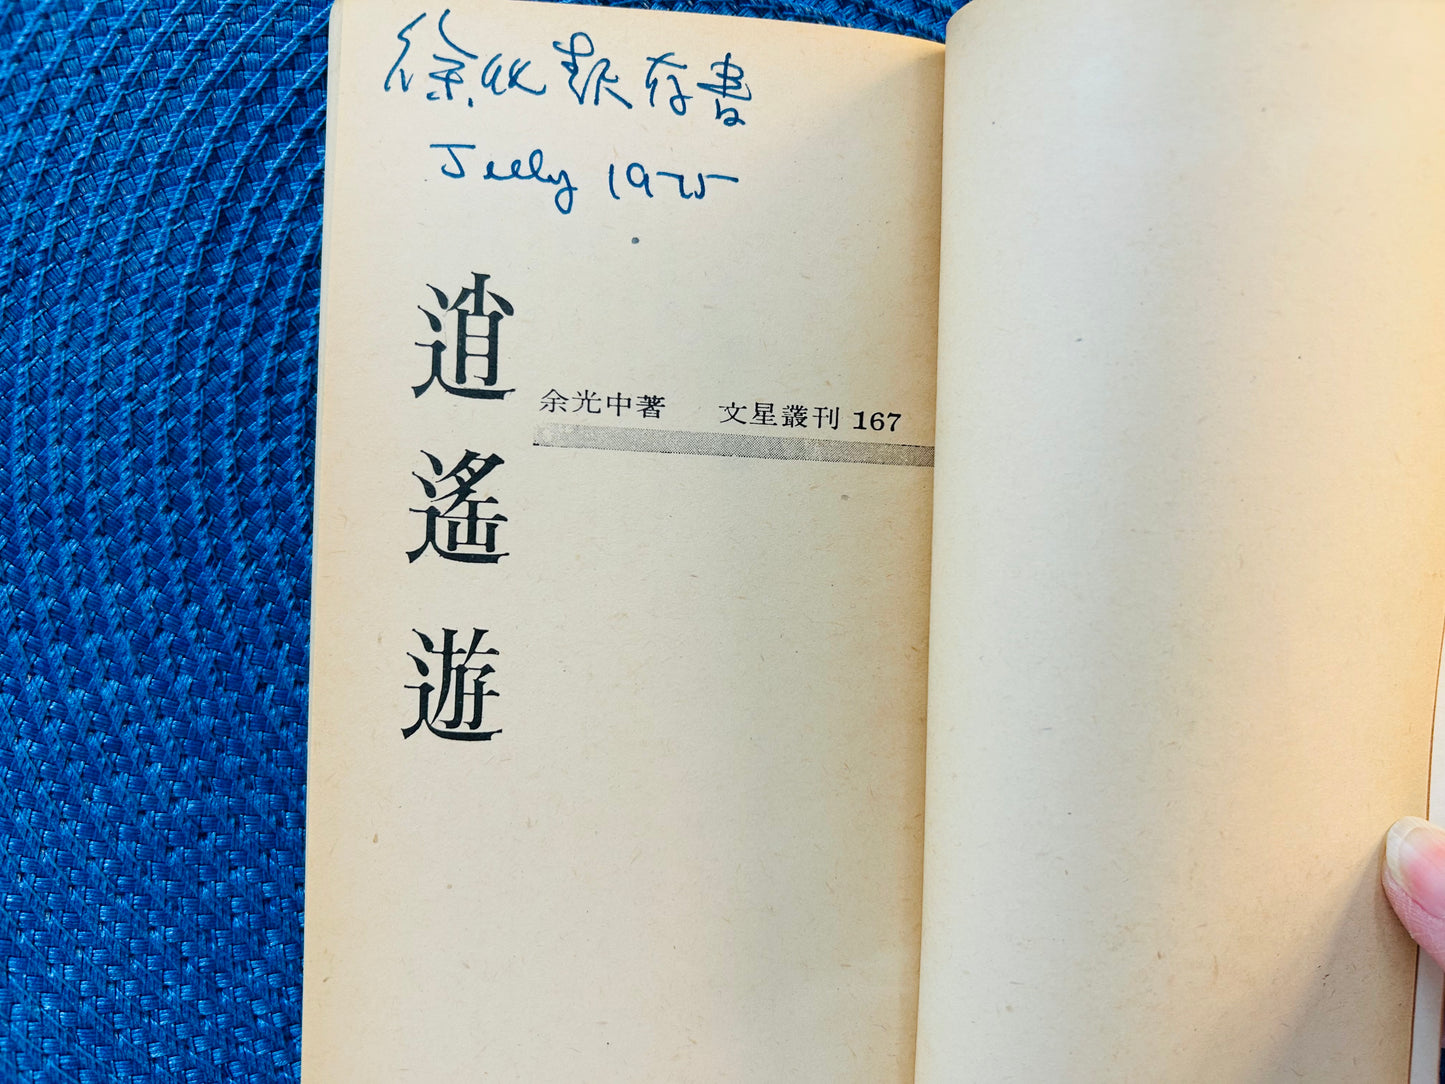 徐 存書
July 1975
逍遙遊
余光中著 文星叢刊 167